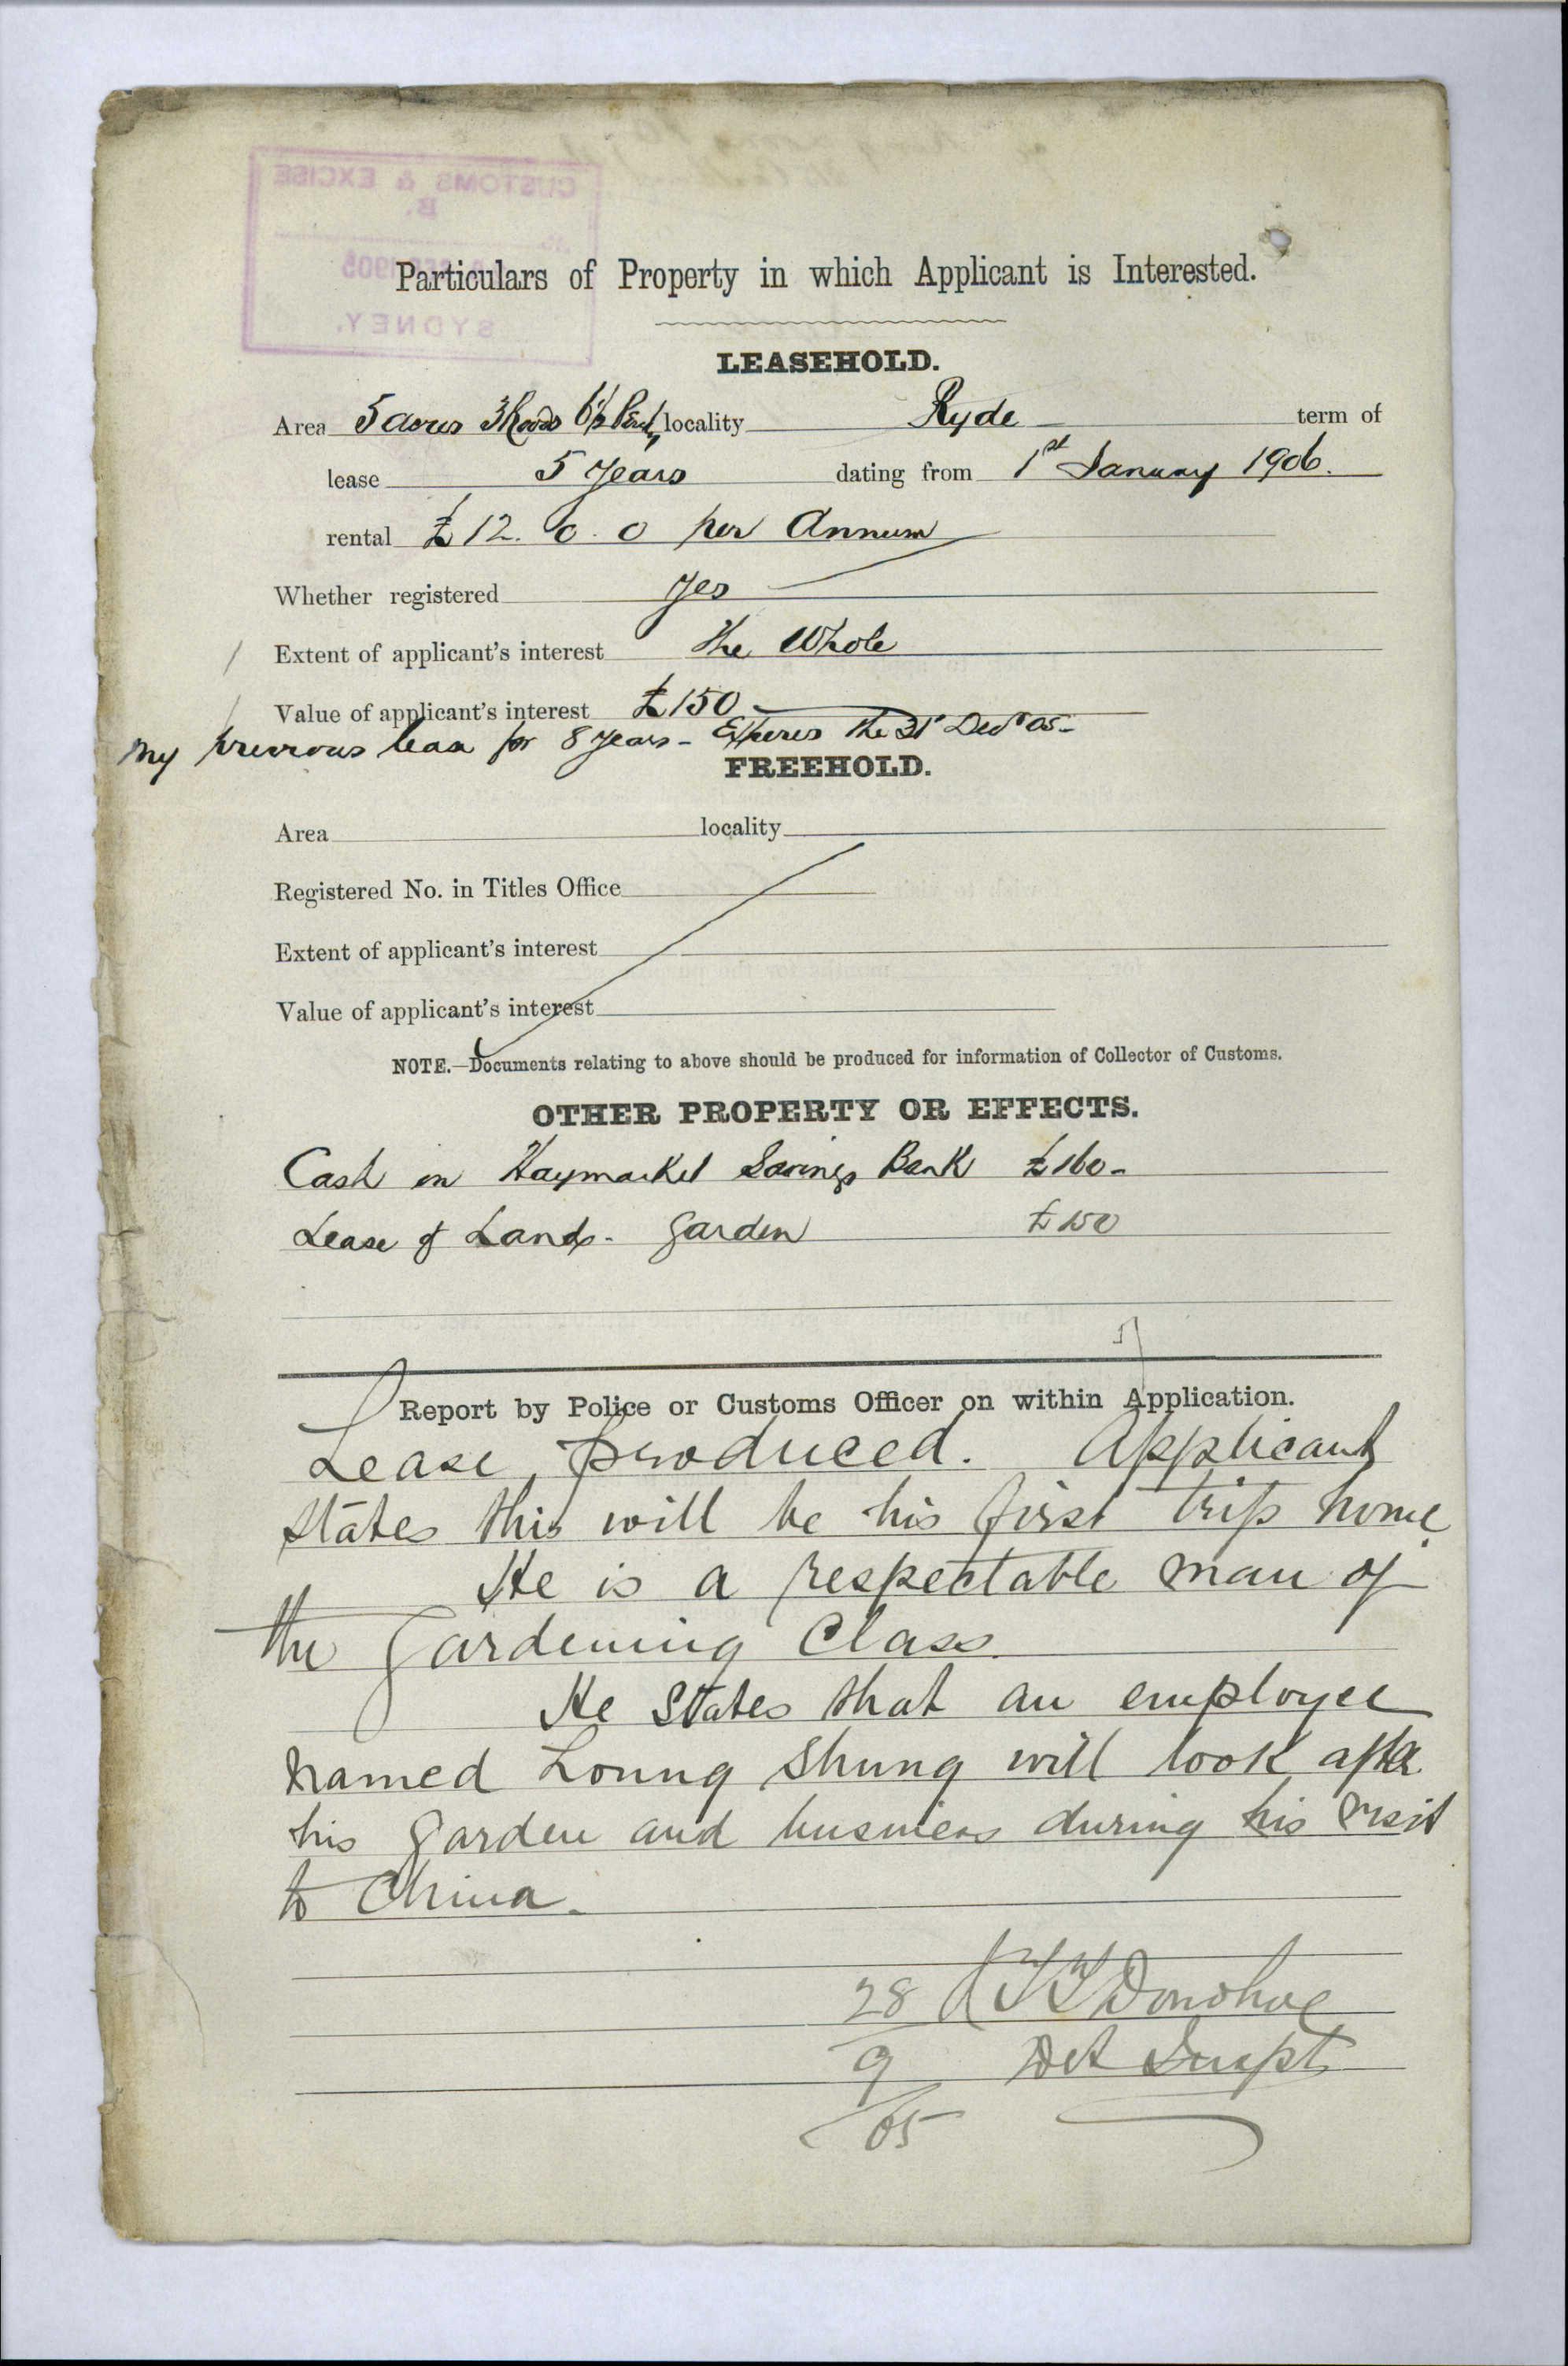 CUSTOMS & EXCISE
B.
1905
SYDNEY.
Particulars of Property in which Applicant is Interested.
LEASEHOLD.
Area 5 acres 3 Roods 6½ locality Ryde term of
lease 5 years dating from 1st January 1906.
rental £12. 0. 0 per Annum
Whether registered yes
Extent of applicant's interest the Whole
Value of applicant's interest £150
My previous lease for 8 years - Expires the 31st Decr 05 -
FREEHOLD.
Area locality
Registered No. in Titles Office
Extent of applicant's interest
Value of applicant's interest
NOTE.—Documents relating to above should be produced for information of Collector of Customs.
OTHER PROPERTY OR EFFECTS.
Cash in Haymarket Savings Bank £160 -
Lease of Land - Garden £150
Report by Police or Customs Officer on within Application.
Lease produced. Applicant
states this will be his first trip home.
He is a respectable man of
the Gardening Class.
He States that an employee
named Loung Shung will look after
his Garden and business during his visit
to China.
28 Donohoe
9
05